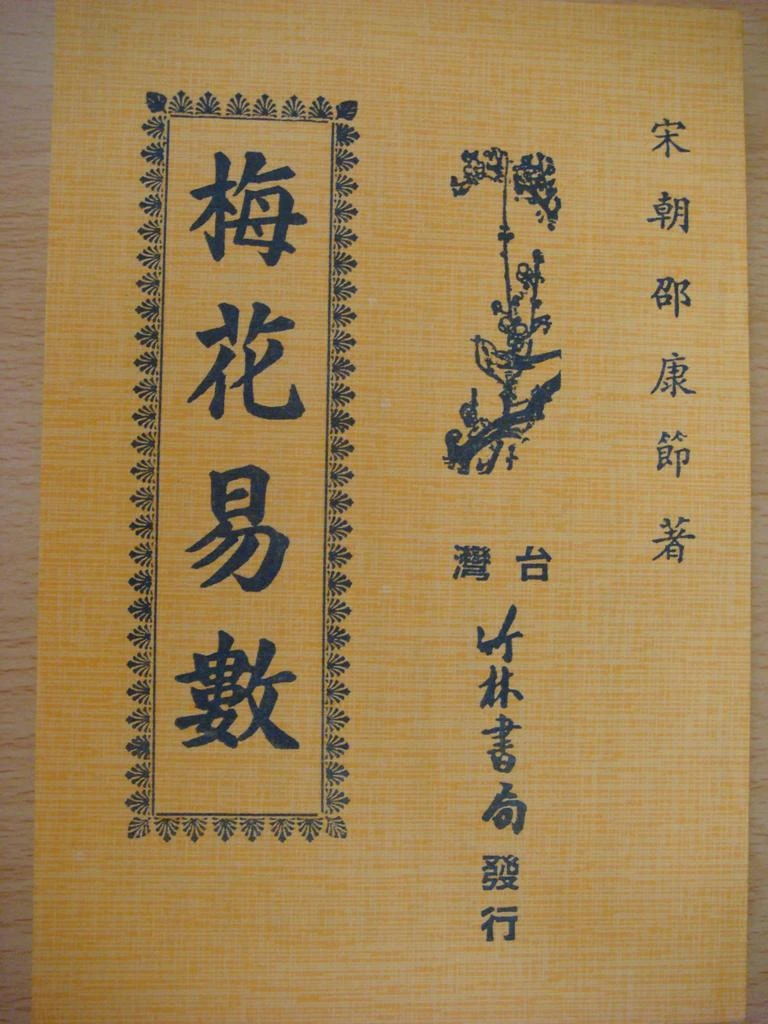 宋朝邵康節著
台灣
竹林書局
發行
梅花易數